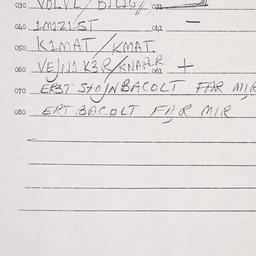 030 VOLVL/BILJG// 032
040 1M1Z1ST 041 —
050 K1MAT/KMAT.
060 VEJN1K3R/KNAPPR 061 +
070 ER3T STOJNBACOLT FAR MIR
080 ERT BACOLT FAR MIR